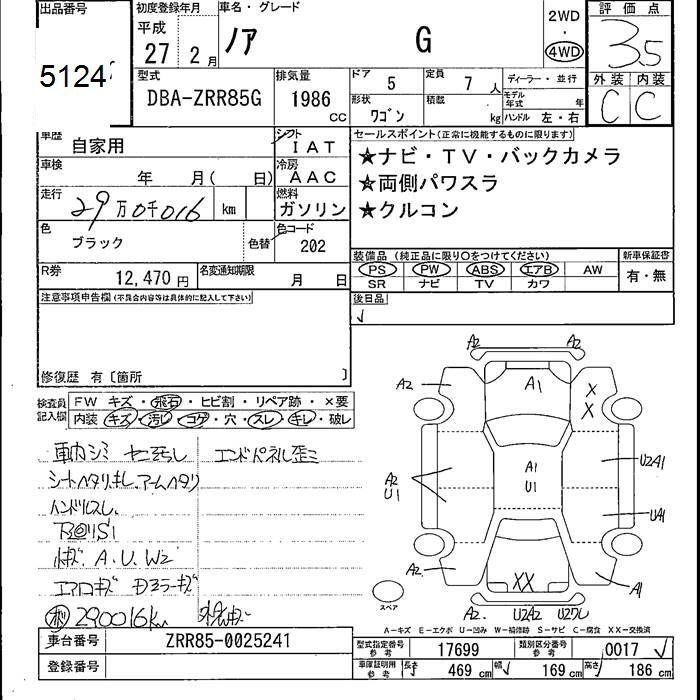 出品番号
5124
初度登録年月
平成
27 年 2 月
車名・グレード
ノア G
2WD
・
4WD
評価点
3.5
外装 内装
C C
型式
DBA-ZRR85G
排気量
1986
cc
ドア 5 定員 7 人
形状 ワゴン 積載 kg
ディーラー・並行
モデル年式 年
ハンドル 左・右
車歴 自家用
シフト IAT
車検 年 月( 日)
冷房 AAC
走行 29万0千016 km
燃料 ガソリン
色 ブラック 色替
色コード 202
R券 12,470 円
名変通知期限 月 日
セールスポイント(正常に機能するものに限ります)
★ナビ・TV・バックカメラ
★両側パワスラ
★クルコン
装備品 (純正品に限り○をつけてください)
PS PW ABS エアB AW
SR ナビ TV カワ
新車保証書
有・無
後日品
注意事項申告欄(不具合内容等は具体的に記入して下さい)
修復歴 有〔箇所 〕
検査員記入欄
FW キズ・飛石・ヒビ割・リペア跡・×要
内装 キズ・汚し・コゲ・穴・スレ・キレ・破レ
車内シミ
エンドパネル歪ミ
シートヘタリ、キレ、アームヘタリ
ハンドルスレ
A.U.W2
エアロキズ ドアミラーキズ
290016km
A2 A2
A2 A1 X X
A1
U1
A2
U1
U2A1
UA1
A2 XX A1
スペア
A2 U2A2
A-キズ E-エクボ U-凹み W-補修跡 S-サビ C-腐食 XX-交換済
車台番号 ZRR85-0025241
登録番号
型式指定番号 参考 17699 類別区分番号 参考 0017
車庫証明用 参考 長さ 469 cm 幅 169 cm 高さ 186 cm